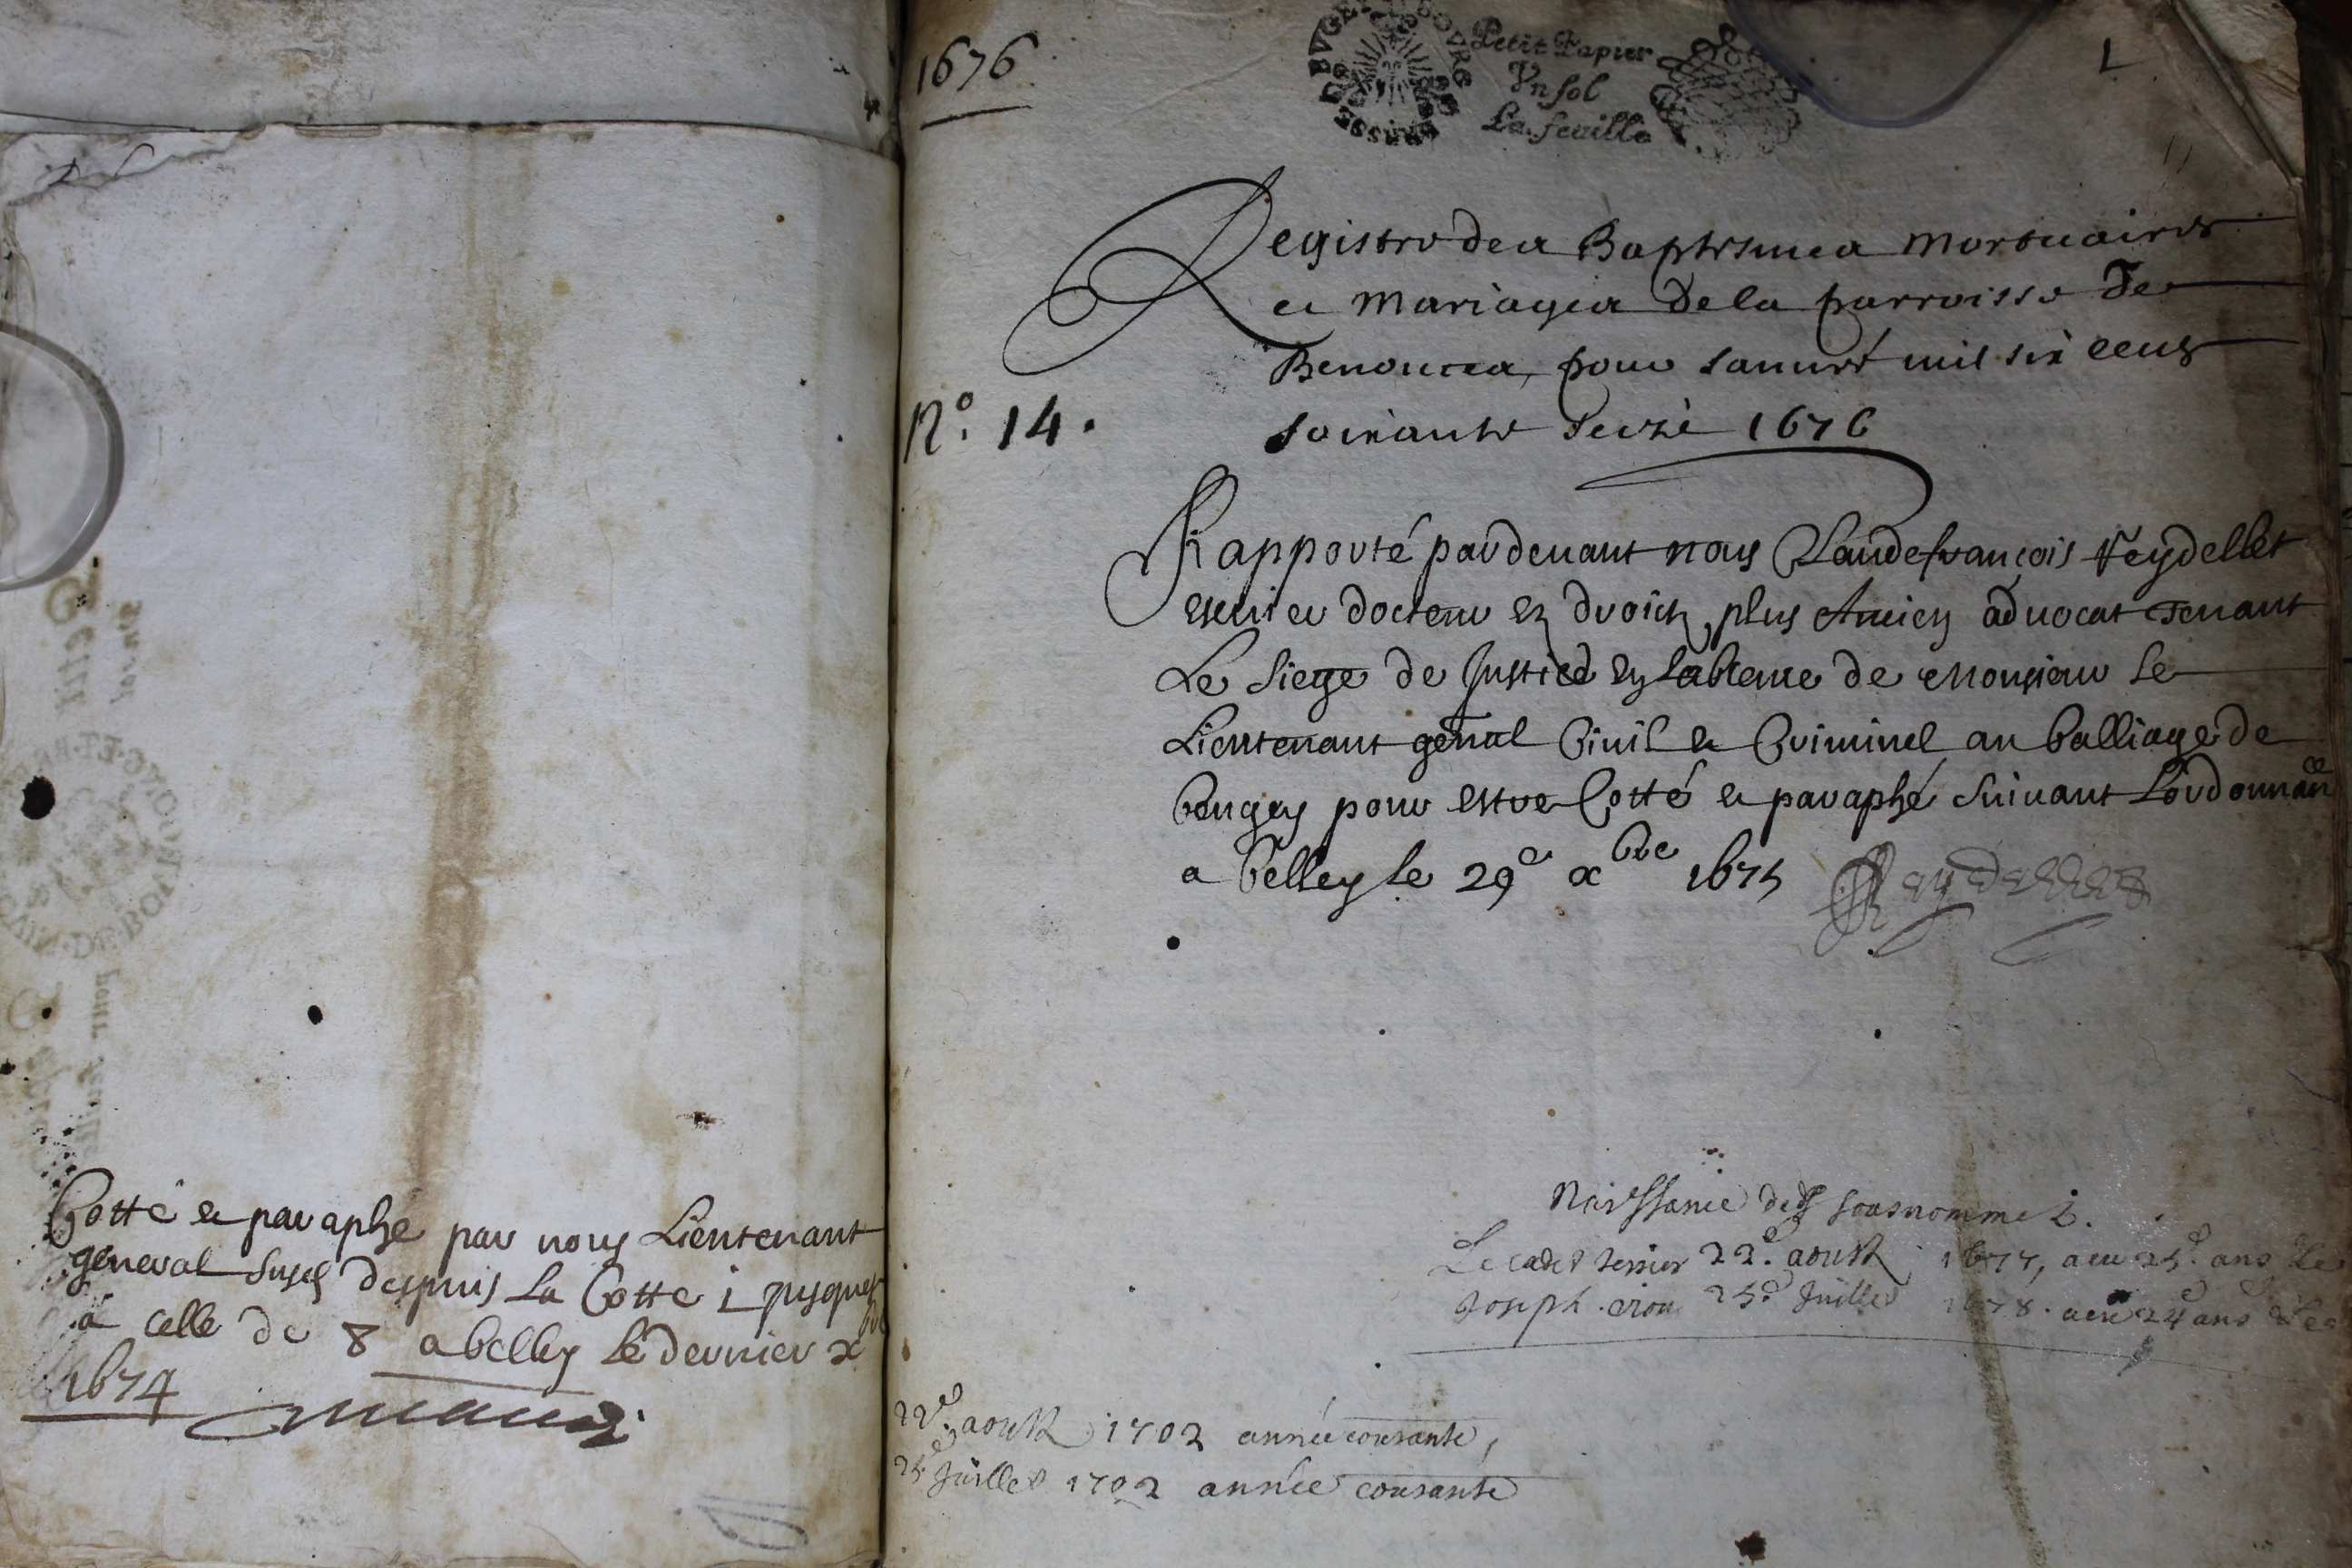 Cotté et paraphé par nous Lieutenant
general susd despuis la Cotte 1 jusques
a celle de 8 a belley le dernier xbre
1674
1676
Petit Papier
Vn sol
La feuille
1
Registre des Baptesmes mortuaires
et mariages de la parroisse de
Benonces, pour lanneé mil six cens
soixante seizè 1676
N.º 14.
Rapporté pardeuant nous Claude françois Reydellet
escuier docteur en droicts, plus Ancien aduocat tenant
Le siege de Justice en labsence de Monsieur le
Lieutenant genal Ciuil et Criminel au balliage de
beugey pour estre Cotté et paraphé suiuant Lordonnance
a belley le 29e xbre 1675 Reydellet
Naissance des sousnommez.
Le cadet tessier 22.e aoust 1677, a eu 25.e ans le
Joseph 25.e Juillet 1678. a eu 24e ans le
22.e aoust 1702 année courante,
25.e Juillet 1702 année courante